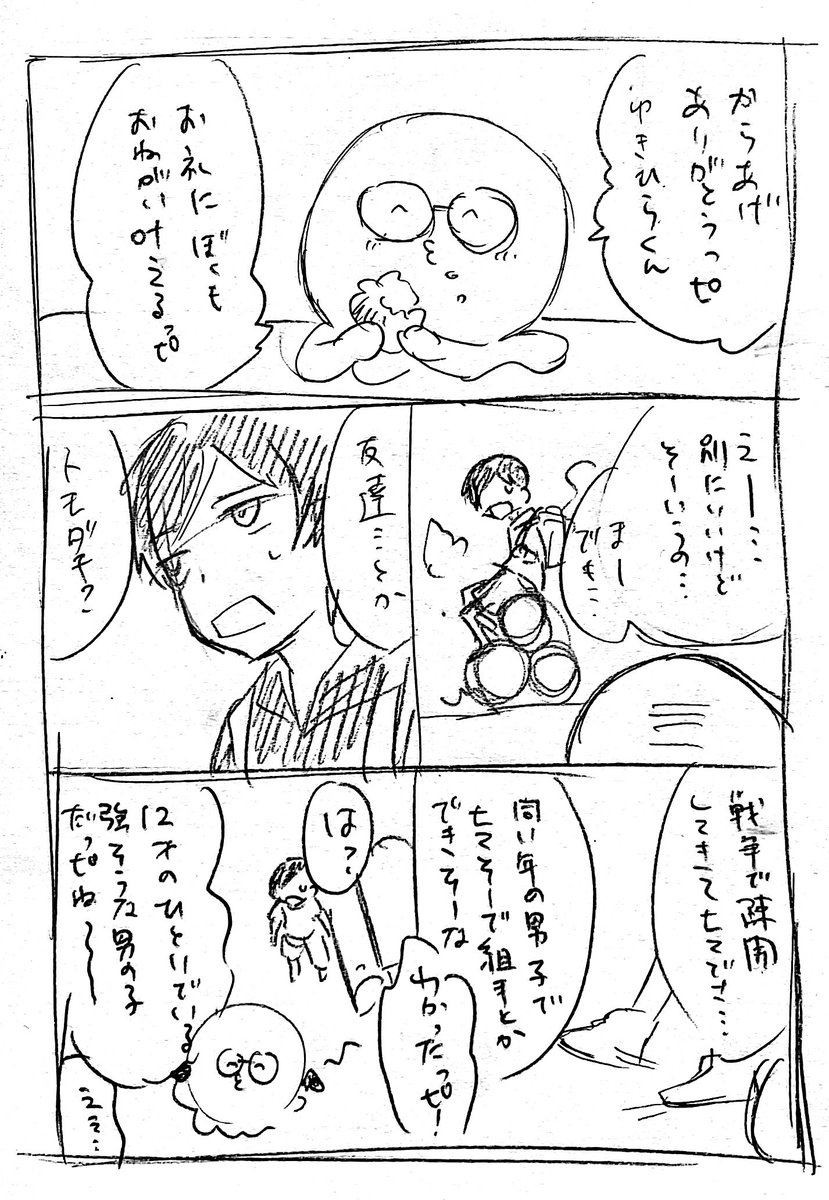 からあげ
ありがとうっピ
ゆきひらくん
お礼にぼくも
おねがい叶えるっピ
えー…
別にいいけど
そーいうの…
まー
でも…
友達とか
トモダチ?
戦争で疎開
してきててさ…
同い年の男子で
組手とか
できそーな
は?
わかったっピ!
12才のひといでいる
強そうな男の子
だっピね〜〜
ええ…